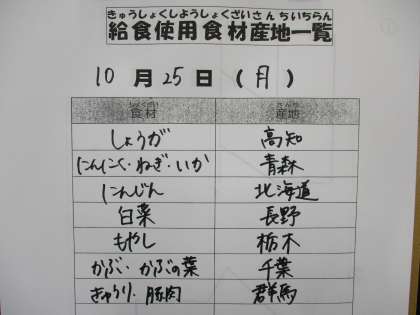 きゅうしょくしようしょくざいさんちいちらん
給食使用食材産地一覧
10月25日(月)
食材 産地
しょうが 高知
にんにく・ねぎ・いか 青森
にんじん 北海道
白菜 長野
もやし 栃木
かぶ・かぶの葉 千葉
きゅうり・豚肉 群馬